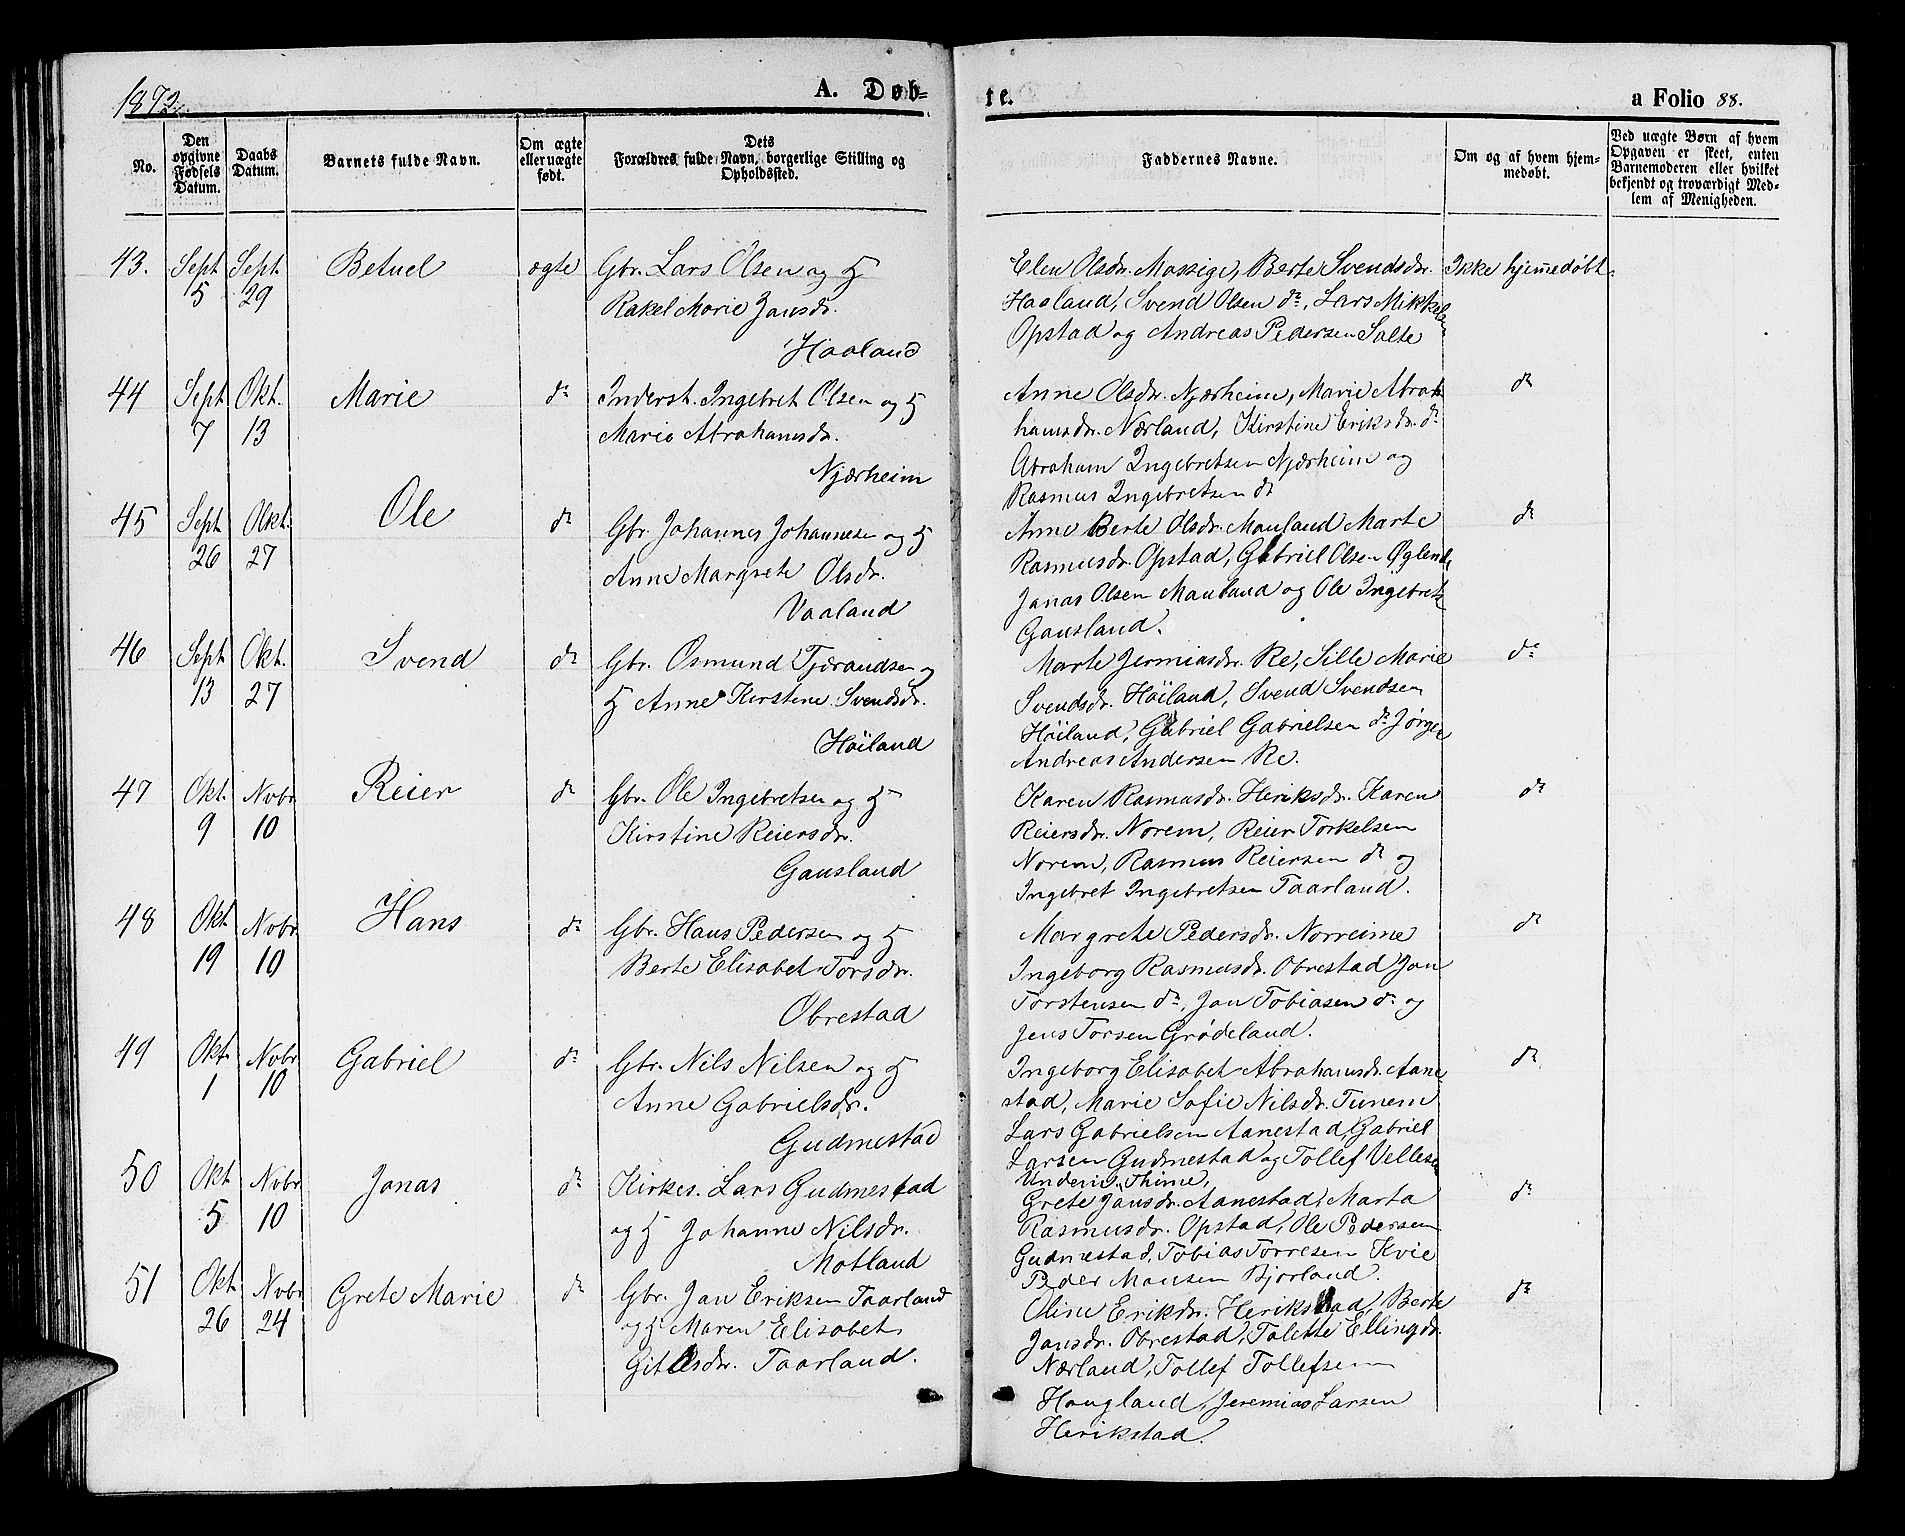 1872.
A. Døb-
te.
a Folio 88.
No.
Den opgivne Fødsels Datum.
Daabs Datum.
Barnets fulde Navn.
Om ægte eller uægte født.
Dets Forældres fulde Navn, borgerlige Stilling og Opholdssted.
Faddernes Navne.
Om og af hvem hjemmedøbt.
Ved uægte Børn af hvem Opgaven er skeet, enten Barnemoderen eller hvilket bekjendt og troværdigt Medlem af Menigheden.
43. Sept 5 Sept. 29 Betuel ægte
Gbr. Lars Olsen og H
Rakel Marie Jansdr.
Haaland
Elen Olsdr. Mossige, Berte Svendsdr.
Haaland, Svend Olsen do, Lars Mikkelsen
Opstad og Andreas Pedersen Salte
Ikke hjemedøbt
44 Sept 7 Okt. 13 Marie do
Inderst. Ingebret Olsen og H
Marie Abrahamsdr.
Njærheim
Anne Olsdr. Njærheim, Marie Abra-
hamsdr. Nærland, Kirstine Eriksdr. do
Abraham Ingebretsen Njærheim og
Rasmus Ingebretsen do
do
45 Sept 26 Okt. 27 Ole do
Gbr. Johannes Johannesen og H
Anne Margrete Olsdr.
Vaaland
Anne Berte Olsdr. Mauland Marte
Rasmusdr. Opstad, Gabriel Olsen Øglend,
Jonas Olsen Mauland og Ole Ingebrets
Gausland.
do
46 Sept 13 Okt. 27 Svend do
Gbr. Osmund Tjørandsen og
H Anne Kirstine Svendsdr.
Høiland
Marte Jermiasdr. Re, Sille Marie
Svendsdr. Høiland, Svend Svendsen
Høiland, Gabriel Gabrielsen do Jørgen
Andreas Andersen Re.
do
47 Okt. 9 Novbr 10 Reier do
Gbr. Ole Ingebretsen og H
Kirstine Reiersdr.
Gausland
Karen Rasmusdr. Heriksdr. Karen
Reiersdr. Norem, Reier Torkelsen
Norem, Rasmus Reiersen do og
Ingebret Ingebretsen Taarland.
do
48 Okt 19 Novbr 10 Hans do
Gbr. Hans Pedersen og H
Berte Elisabet Torsdr.
Obrestad
Margrete Pedersdr. Norreime
Ingeborg Rasmusdr. Obrestad Jon
Torstensen do, Jan Tobiasen do og
Jens Torsen Grødeland.
do
49 Okt. 1 Novbr 10 Gabriel do
Gbr. Nils Nilsen og H
Anne Gabrielsdr.
Gudmestad
Ingeborg Elisabet Abrahamsdr. Aane
stad, Marie Sofie Nilsdr. Tunem
Lars Gabrielsen Aanestad, Gabriel
Larsen Gudmestad og Tollef Vellesen
Underis. Thime,
do
50 Okt 5 Novbr 10 Jonas do
Kirkes. Lars Gudmestad
og H Johanne Nilsdr.
Motland
Grete Jansdr. Aanestad, Marta
Rasmusdr. Opstad, Ole Pedersen
Gudmestad, Tobias Torresen Kvie
Peder Monsen Bjorland.
do
51 Okt. 26 Novbr 24 Grete Marie do
Gbr. Jan Eriksen Taarland
og H Maren Elisabet
Gitlesdr. Taarland.
Oline Erikdr. Herikstad, Berte
Jansdr. Obrestad, Talette Ellingdr.
Nærland, Tollef Tollefsen
Hougland, Jeremias Larsen
Herikstad.
do